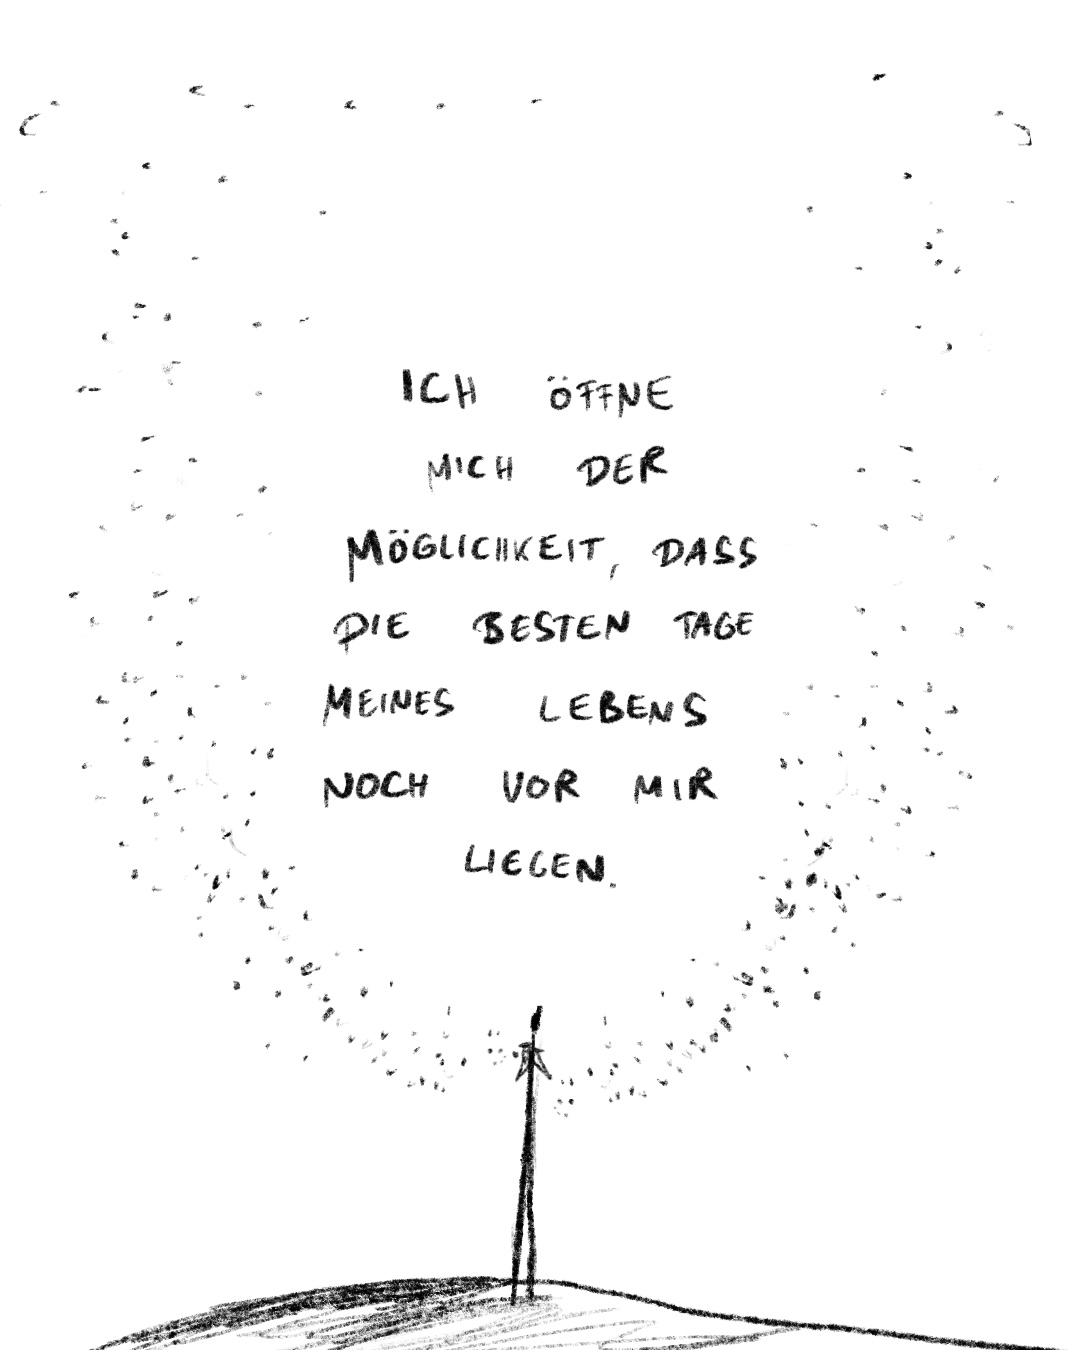 ICH ÖFFNE
MICH DER
MÖGLICHKEIT, DASS
DIE BESTEN TAGE
MEINES LEBENS
NOCH VOR MIR
LIEGEN.